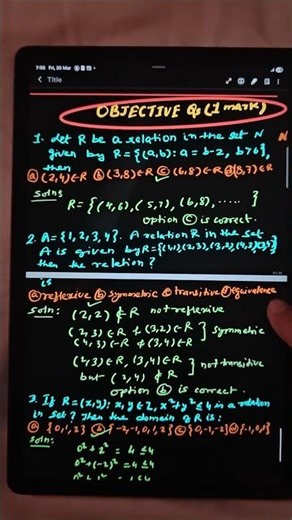 7:58 Fri, 20 Mar
Title
OBJECTIVE Qs (1 mark)
1. Let R be a relation in the set N N
given by R = {(a,b): a = b-2, b>6},
then
ⓐ (2,4)∈R ⓑ (3,8)∈R ⓒ (6,8)∈R ⓓ (8,7)∈R
Soln:
R = {(4,6), (5,7), (6,8), ..... }
option ⓒ is correct.
2. A = {1,2,3,4}. A relation R in the set
A is given by R =
then the relation ?
is
ⓐ reflexive ⓑ symmetric ⓒ transitive ⓓ equivalence
Soln: (2,2) ∉ R not reflexive
(2,3)∈R + (3,2)∈R } symmetric
(4,3)∈R + (3,4)∈R
(2,3)∈R, (3,4)∈R } not transitive
but (2,4) ∉ R
option ⓑ is correct.
3. If R = {(x,y): x,y ∈ Z, x²+y² ≤ 4 is a relation
in set ? Then the domain of R is:
ⓐ {0,1,2} ⓑ {-2,-1,0,1,2} ⓒ {0,-1,-2} ⓓ {-1,0,1}
Soln:
0²+2² = 4 ≤ 4
0²+(-2)² = 4 ≤ 4